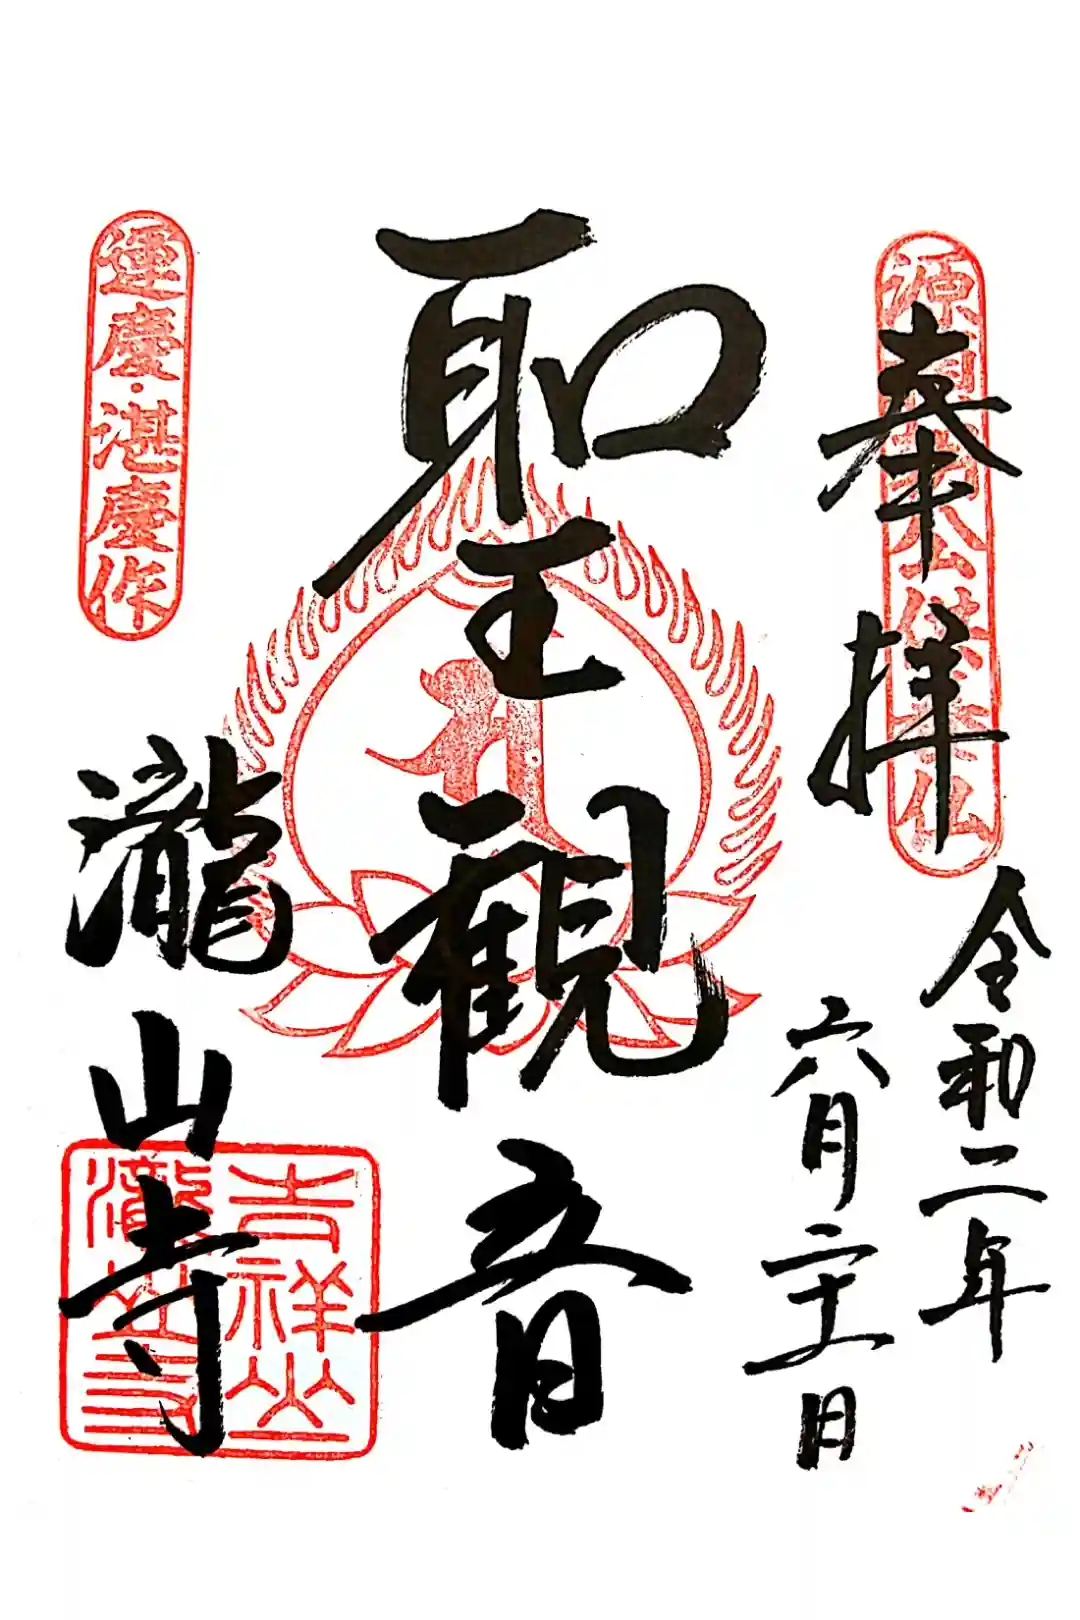 源頼朝公供養仏
奉拝
令和二年
六月二十五日
聖王観音
運慶・湛慶作
瀧山寺
吉祥山
瀧山寺